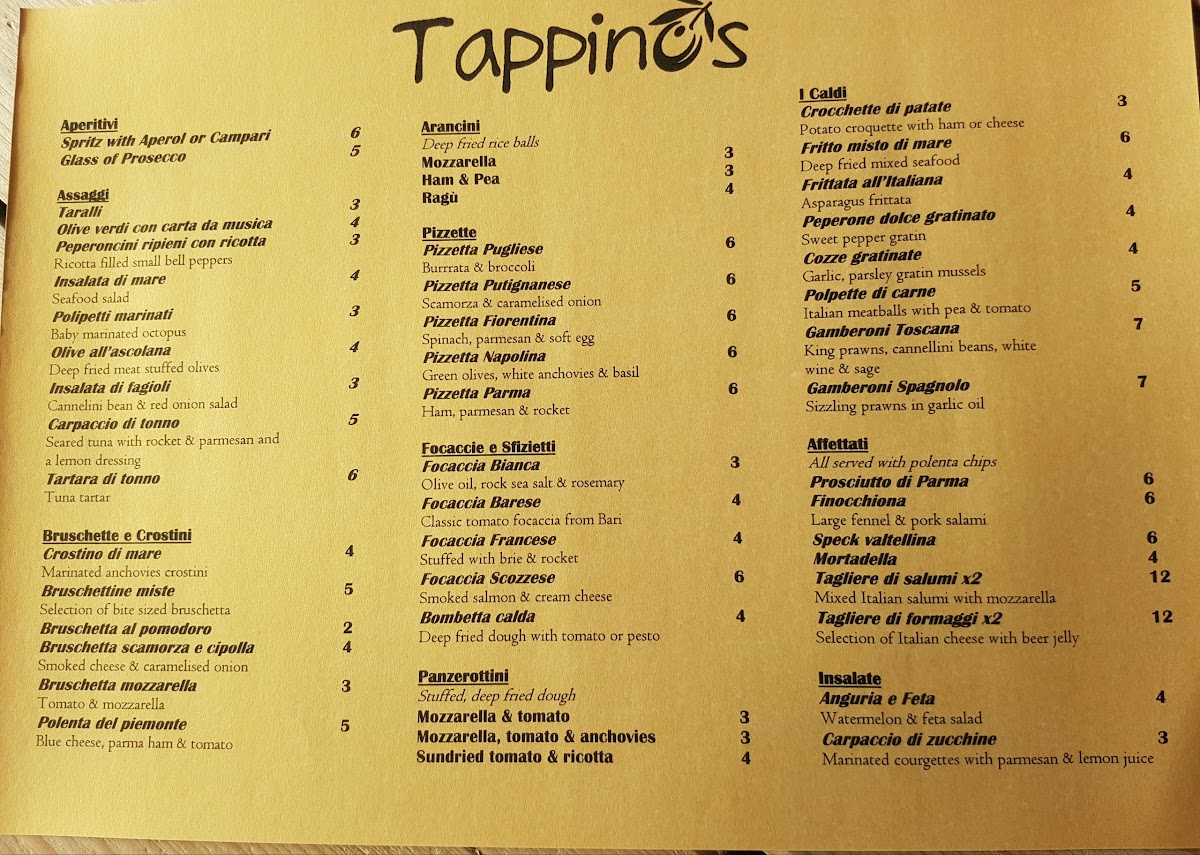 Tappino's
Aperitivi
Spritz with Aperol or Campari 6
Glass of Prosecco 5
Assaggi
Taralli 3
Olive verdi con carta da musica 4
Peperoncini ripieni con ricotta 3
Ricotta filled small bell peppers
Insalata di mare 4
Seafood salad
Polipetti marinati 3
Baby marinated octopus
Olive all'ascolana 4
Deep fried meat stuffed olives
Insalata di fagioli 3
Cannelini bean & red onion salad
Carpaccio di tonno 5
Seared tuna with rocket & parmesan and
a lemon dressing
Tartara di tonno 6
Tuna tartar
Bruschette e Crostini
Crostino di mare 4
Marinated anchovies crostini
Bruschettine miste 5
Selection of bite sized bruschetta
Bruschetta al pomodoro 2
Bruschetta scamorza e cipolla 4
Smoked cheese & caramelised onion
Bruschetta mozzarella 3
Tomato & mozzarella
Polenta del piemonte 5
Blue cheese, parma ham & tomato
Arancini
Deep fried rice balls
Mozzarella 3
Ham & Pea 3
Ragù 4
Pizzette
Pizzetta Pugliese 6
Burrrata & broccoli
Pizzetta Putignanese 6
Scamorza & caramelised onion
Pizzetta Fiorentina 6
Spinach, parmesan & soft egg
Pizzetta Napolina 6
Green olives, white anchovies & basil
Pizzetta Parma 6
Ham, parmesan & rocket
Focaccie e Sfizietti
Focaccia Bianca 3
Olive oil, rock sea salt & rosemary
Focaccia Barese 4
Classic tomato focaccia from Bari
Focaccia Francese 4
Stuffed with brie & rocket
Focaccia Scozzese 6
Smoked salmon & cream cheese
Bombetta calda 4
Deep fried dough with tomato or pesto
Panzerottini
Stuffed, deep fried dough
Mozzarella & tomato 3
Mozzarella, tomato & anchovies 3
Sundried tomato & ricotta 4
I Caldi
Crocchette di patate 3
Potato croquette with ham or cheese
Fritto misto di mare 6
Deep fried mixed seafood
Frittata all'Italiana 4
Asparagus frittata
Peperone dolce gratinato 4
Sweet pepper gratin
Cozze gratinate 4
Garlic, parsley gratin mussels
Polpette di carne 5
Italian meatballs with pea & tomato
Gamberoni Toscana 7
King prawns, cannellini beans, white
wine & sage
Gamberoni Spagnolo 7
Sizzling prawns in garlic oil
Affettati
All served with polenta chips
Prosciutto di Parma 6
Finocchiona 6
Large fennel & pork salami
Speck valtellina 6
Mortadella 4
Tagliere di salumi x2 12
Mixed Italian salumi with mozzarella
Tagliere di formaggi x2 12
Selection of Italian cheese with beer jelly
Insalate
Anguria e Feta 4
Watermelon & feta salad
Carpaccio di zucchine 3
Marinated courgettes with parmesan & lemon juice